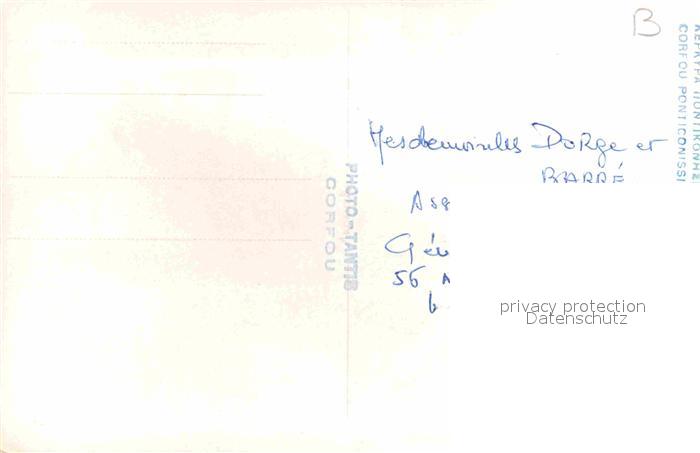 B
ΚΕΡΚΥΡΑ ΠΟΝΤΙΚΟΝΗΣΙ
CORFOU PONTICONISSI
PHOTO-TANTIS
CORFOU
Mesdemoiselles DORGE et
BARRÉ
Asa
Gén
56 A
privacy protection
Datenschutz